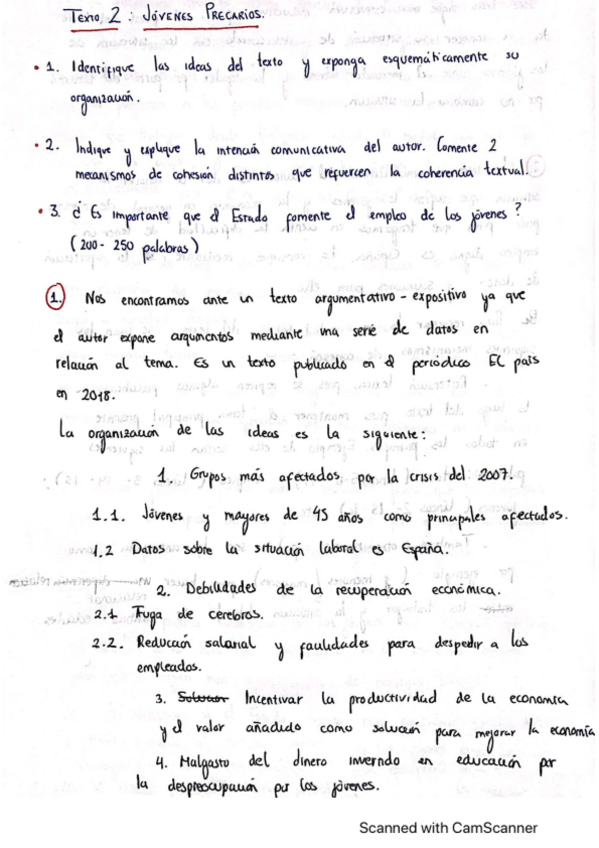 Texto 2: Jóvenes Precarios.
• 1. Identifique las ideas del texto y exponga esquemáticamente su
organización.
• 2. Indique y explique la intención comunicativa del autor. Comente 2
mecanismos de cohesión distintos que refuercen la coherencia textual.
• 3. ¿Es importante que el Estado fomente el empleo de los jóvenes?
(200-250 palabras)
1. Nos encontramos ante un texto argumentativo-expositivo ya que
el autor expone argumentos mediante una serie de datos en
relación al tema. Es un texto publicado en el periódico El país
en 2018.
La organización de las ideas es la siguiente:
1. Grupos más afectados por la crisis del 2007.
1.1. Jóvenes y mayores de 45 años como principales afectados.
1.2 Datos sobre la situación laboral es España.
2. Debilidades de la recuperación económica.
2.1 Fuga de cerebros.
2.2. Reducción salarial y facilidades para despedir a los
empleados.
3. Solución Incentivar la productividad de la economía
y el valor añadido como solución para mejorar la economía
4. Malgasto del dinero inverndo en educación por
la despreocupación por los jóvenes.
Scanned with CamScanner